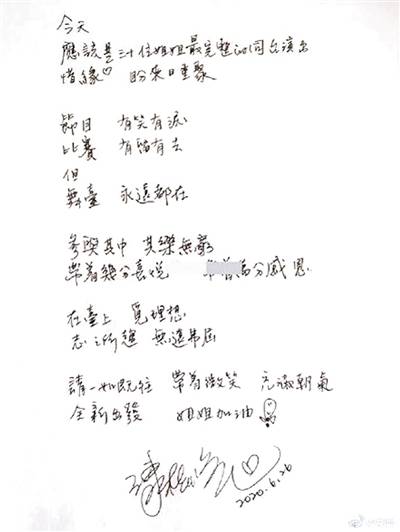 今天
應該是三十位姐姐最完整的同台演出
惜緣♡ 盼來日重聚
節目 有笑有淚
比賽 有留有去
但
舞臺 永遠都在
參與其中 其樂無窮
帶著幾分喜悅 帶著萬分感恩
在臺上 覓理想
志之所趨 無遠弗屆
請一如既往 帶著微笑 充滿朝氣
全新出發 姐姐加油
2020.6.26